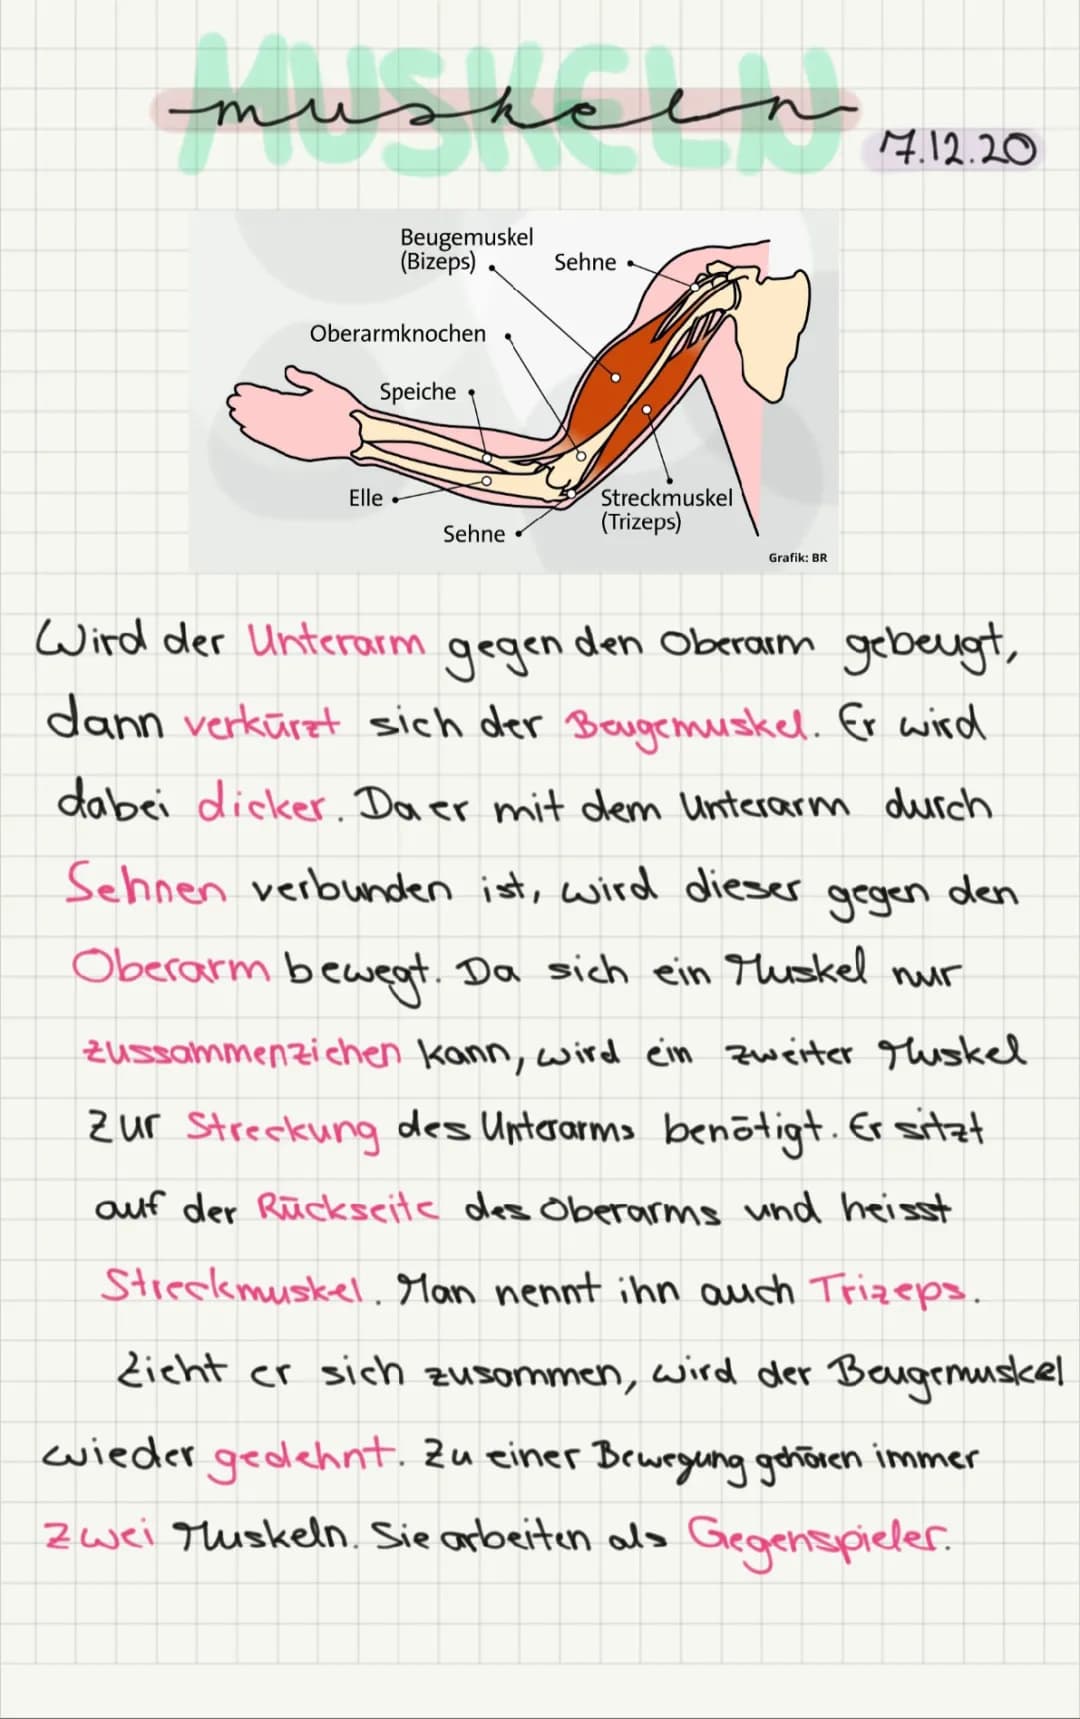 MUSKELN
muskeln
7.12.20
Beugemuskel
(Bizeps)
Sehne
Oberarmknochen
Speiche
Elle
Sehne
Streckmuskel
(Trizeps)
Grafik: BR
Wird der Unterarm gegen den Oberarm gebeugt,
dann verkürzt sich der Beugemuskel. Er wird
dabei dicker. Da er mit dem Unterarm durch
Sehnen verbunden ist, wird dieser gegen den
Oberarm bewegt. Da sich ein Muskel nur
zussammenziehen kann, wird ein zweiter Muskel
zur Streckung des Unterarms benötigt. Er sitzt
auf der Rückseite des Oberarms und heisst
Streckmuskel. Man nennt ihn auch Trizeps.
Zieht er sich zusammen, wird der Beugemuskel
wieder gedehnt. Zu einer Bewegung gehören immer
zwei Muskeln. Sie arbeiten als Gegenspieler.